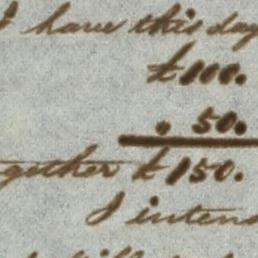 I have this day
£100.
. 50.
ogether £150.
I intend